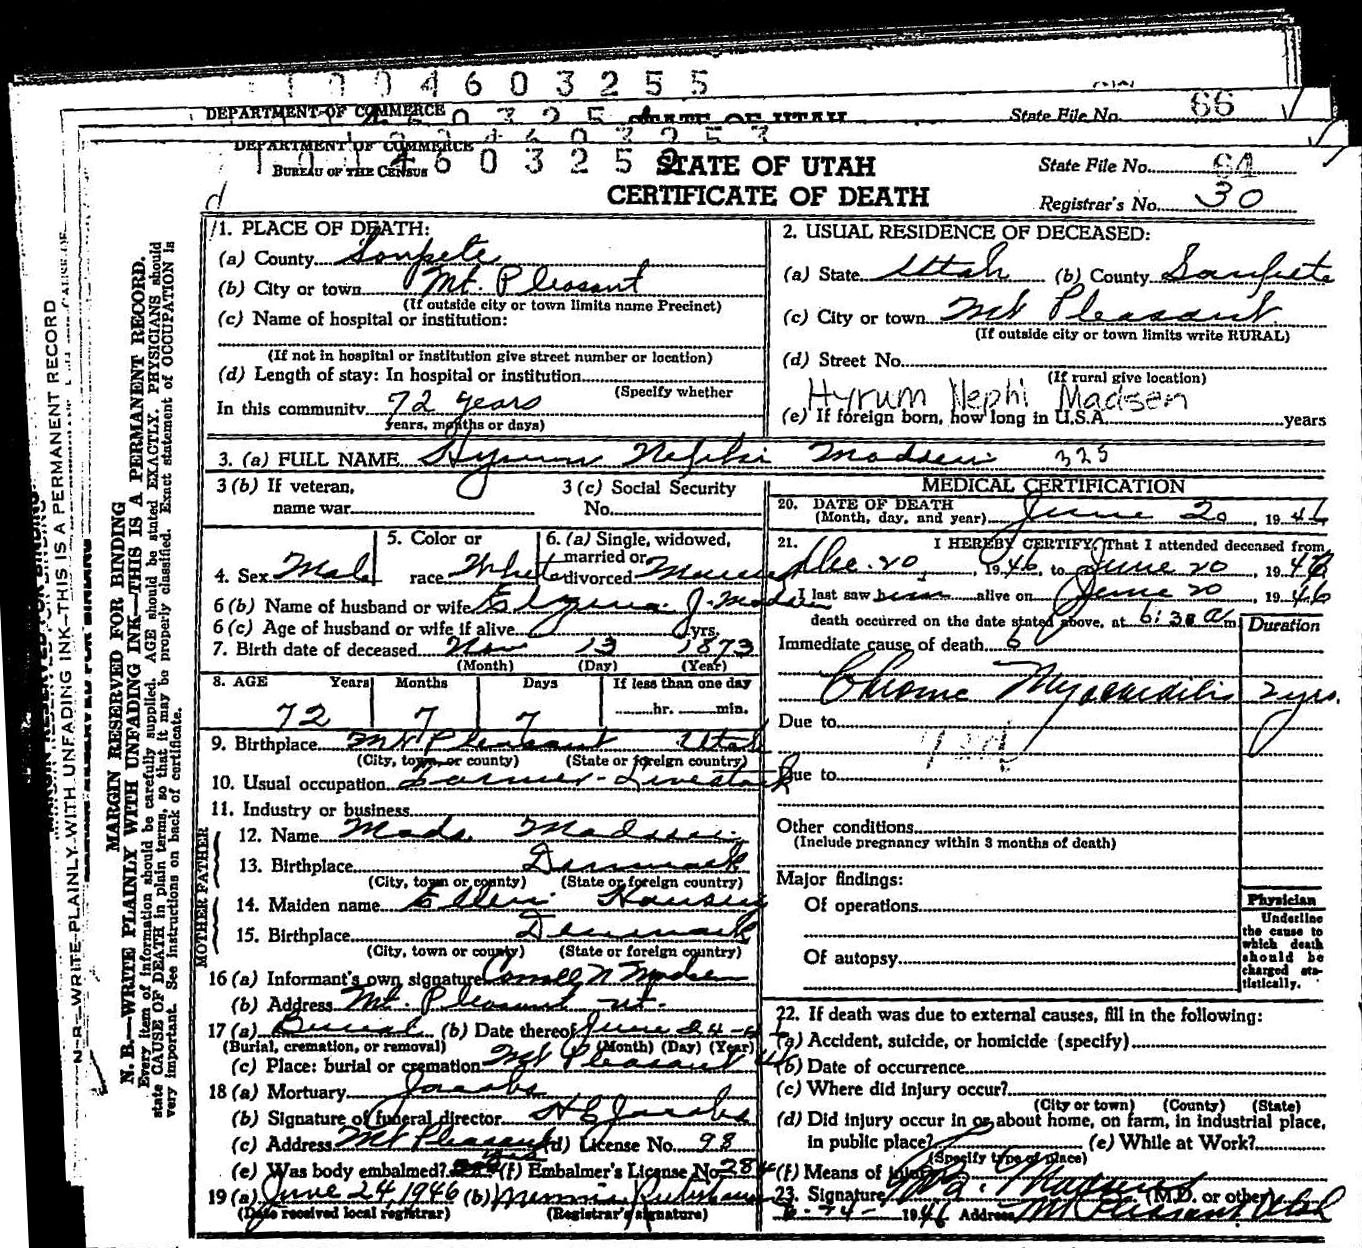 1 0 0 4 6 0 3 2 5 5
DEPARTMENT OF COMMERCE STATE OF UTAH State File No. 66
DEPARTMENT OF COMMERCE
BUREAU OF THE CENSUS
1 0 0 4 6 0 3 2 5
STATE OF UTAH
CERTIFICATE OF DEATH
State File No. 64
Registrar's No. 30
MARGIN RESERVED FOR BINDING
N. B.—WRITE PLAINLY WITH UNFADING INK—THIS IS A PERMANENT RECORD.
Every item of information should be carefully supplied. AGE should be stated EXACTLY. PHYSICIANS should
state CAUSE OF DEATH in plain terms, so that it may be properly classified. Exact statement of OCCUPATION is
very important. See instructions on back of certificate.
N. B.—WRITE PLAINLY WITH UNFADING INK—THIS IS A PERMANENT RECORD
1. PLACE OF DEATH:
(a) County Sanpete
(b) City or town Mt. Pleasant
(If outside city or town limits name Precinct)
(c) Name of hospital or institution:
(If not in hospital or institution give street number or location)
(d) Length of stay: In hospital or institution
(Specify whether
In this community 72 years
years, months or days)
2. USUAL RESIDENCE OF DECEASED:
(a) State Utah (b) County Sanpete
(c) City or town Mt Pleasant
(If outside city or town limits write RURAL)
(d) Street No.
(If rural give location)
Hyrum Nephi Madsen
(e) If foreign born, how long in U.S.A. years
3. (a) FULL NAME Hyrum Nephi Madsen 325
3 (b) If veteran,
name war
3 (c) Social Security
No.
4. Sex Male
5. Color or
race White
6. (a) Single, widowed,
married or
divorced Married
6 (b) Name of husband or wife J. Madsen
6 (c) Age of husband or wife if alive yrs.
7. Birth date of deceased Nov 13 1873
(Month) (Day) (Year)
8. AGE Years Months Days If less than one day
72 7 7 hr. min.
9. Birthplace Mt Pleasant Utah
(City, town, or county) (State or foreign country)
10. Usual occupation Farmer - Livestock
11. Industry or business
FATHER
12. Name Mads Madsen
13. Birthplace Denmark
(City, town or county) (State or foreign country)
MOTHER
14. Maiden name Ellen Hansen
15. Birthplace Denmark
(City, town or county) (State or foreign country)
16 (a) Informant's own signature N Madsen
(b) Address Mt. Pleasant Ut.
17 (a) Burial (b) Date thereof June 24-46
(Burial, cremation, or removal) (Month) (Day) (Year)
(c) Place: burial or cremation Mt Pleasant Ut
18 (a) Mortuary Jacobs
(b) Signature of funeral director H C Jacobs
(c) Address Mt Pleasant (d) License No. 98
(e) Was body embalmed? yes (f) Embalmer's License No. 284
19 (a) June 24, 1946 (b)
(Date received local registrar) (Registrar's signature)
MEDICAL CERTIFICATION
20. DATE OF DEATH
(Month, day, and year) June 20, 1946
21. I HEREBY CERTIFY, That I attended deceased from
Dec. 20, 1946, to June 20, 1946
I last saw him alive on June 20, 1946
death occurred on the date stated above, at 6:30 a m
Duration
Immediate cause of death
Chronic Myocarditis 2 yrs.
Due to
Due to
Other conditions
(Include pregnancy within 3 months of death)
Major findings:
Of operations
Of autopsy
Physician
Underline
the cause to
which death
should be
charged sta-
tistically.
22. If death was due to external causes, fill in the following:
(a) Accident, suicide, or homicide (specify)
(b) Date of occurrence
(c) Where did injury occur?
(City or town) (County) (State)
(d) Did injury occur in or about home, on farm, in industrial place,
in public place? (e) While at Work?
(Specify type of place)
(f) Means of injury
23. Signature Madsen (M.D. or other)
6-24- 1946 Address Mt Pleasant Utah